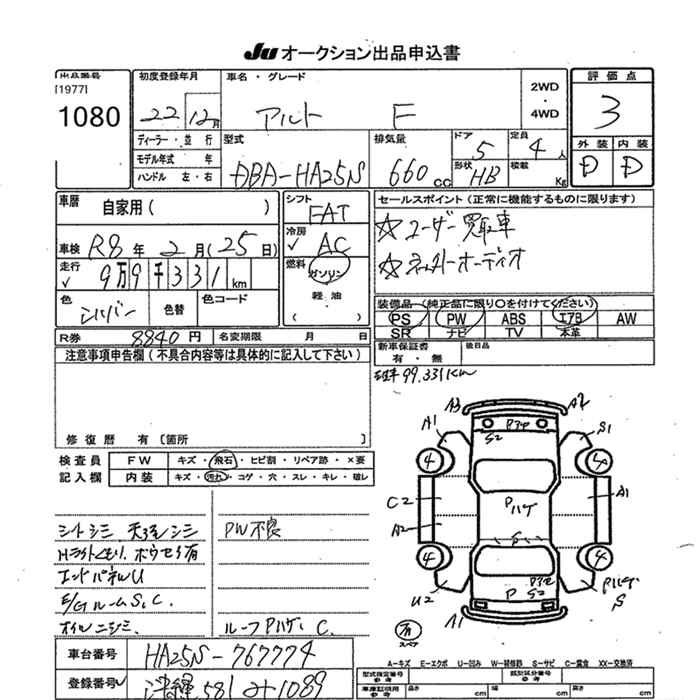 JU オークション出品申込書
出品番号
[1977]
1080
初度登録年月
22 12月
車名・グレード
アルト F
2WD
・
4WD
評価点
3
ディーラー・並行
モデル年式 年
ハンドル 左・右
型式
DBA-HA25N
排気量
660 cc
ドア
5
定員
4人
形状
HB
積載
Kg
外装 内装
D D
車歴
自家用( )
車検
R8年2月(25日)
走行
9万9千331km
色
シルバー
色替
色コード
シフト
FAT
冷房
AC
燃料
ガソリン
軽油
( )
セールスポイント(正常に機能するものに限ります)
☆ユーザー買取車
☆オーディオ
装備品(純正品に限り○を付けてください)
PS PW ABS エアB AW
SR ナビ TV 本革
R券 8840円 名変期限 月 日
新車保証書
有・無
後日品
注意事項申告欄(不具合内容等は具体的に記入して下さい)
99.331Km
修復歴 有〔箇所 〕
検査員
記入欄
FW キズ・飛石・ヒビ割・リペア跡・×要
内装 キズ・汚れ・コゲ・穴・スレ・キレ・破レ
シートシミ 天張シミ
Hライトくもり、ホウセキ有
エンドパネルU
E/GルームS、C、
オイルニジミ、
PW不良
ルーフPハゲ、C、
A3 A2
A1 S1
S2
4 4
C2 PハゲA1
A2
4 4
U2 P S2 Pハゲ
S
A1
有
スペア
車台番号
HA25N-767774
登録番号
沖縄581 み1089
A-キズ E-エクボ U-凹み W-補修跡 S-サビ C-腐食 XX-交換済
型式指定番号
類別区分番号
車庫証明用
参考
長さ cm 幅 cm 高さ cm